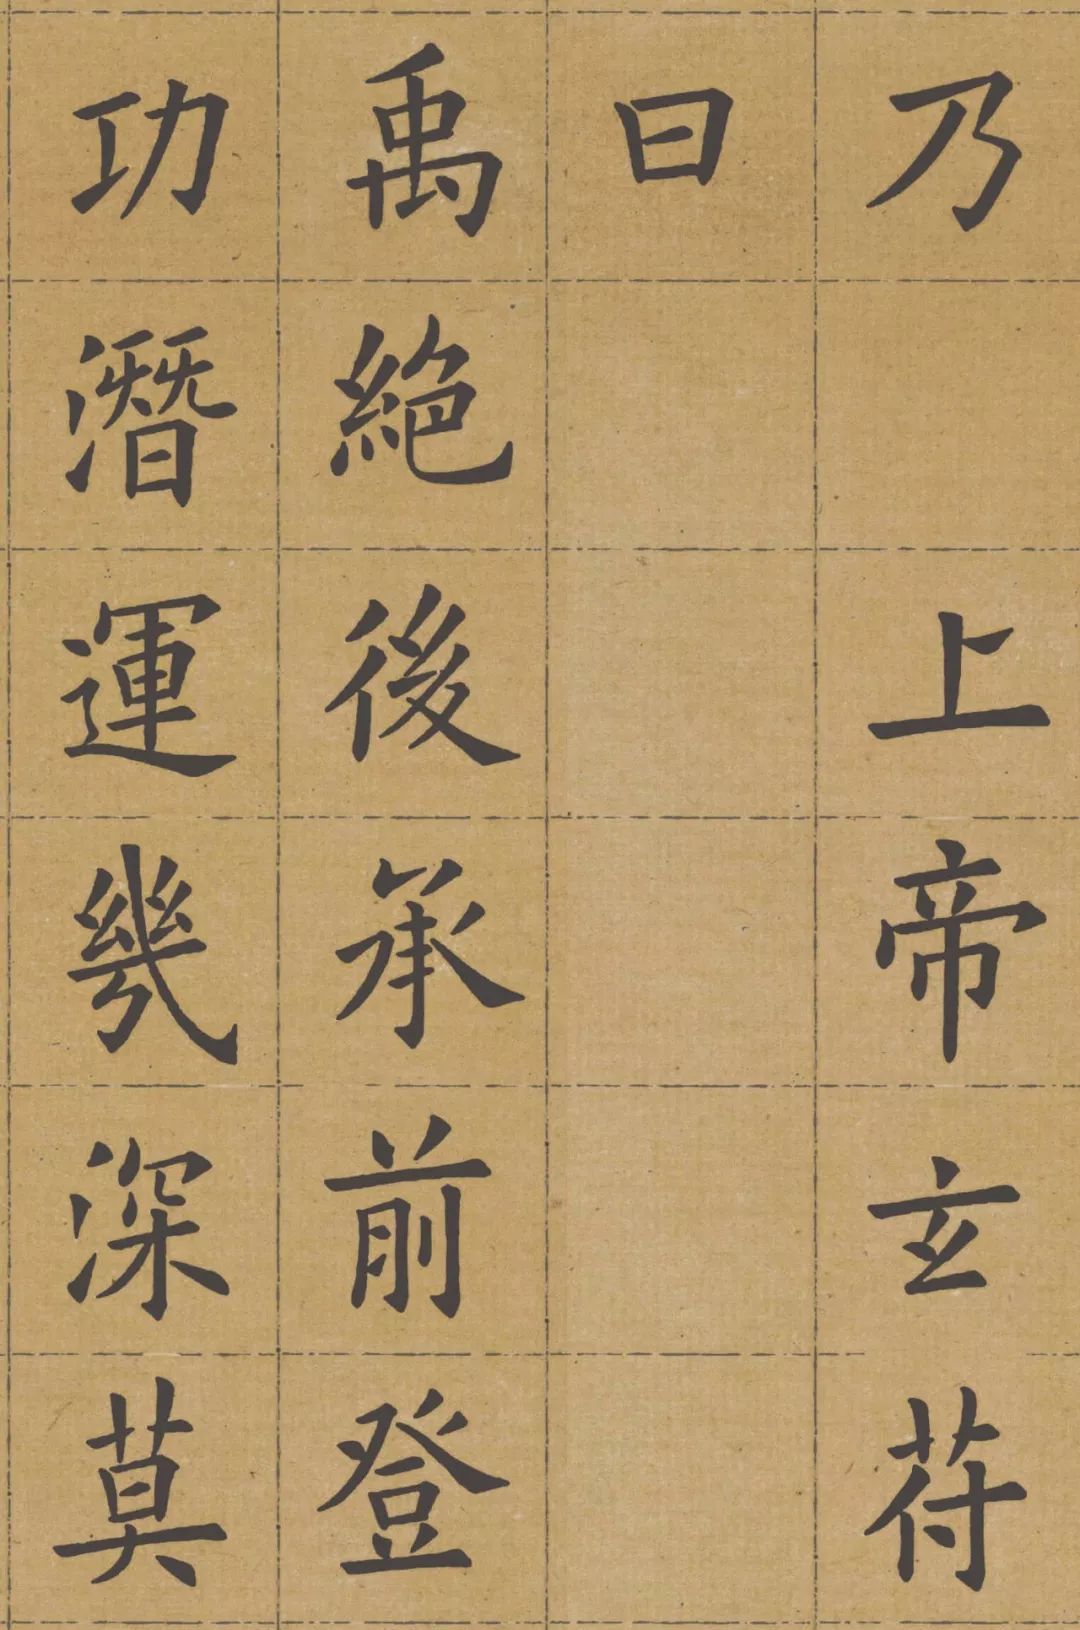 乃上帝玄苻
曰
禹絕後承前登
功潛運幾深莫